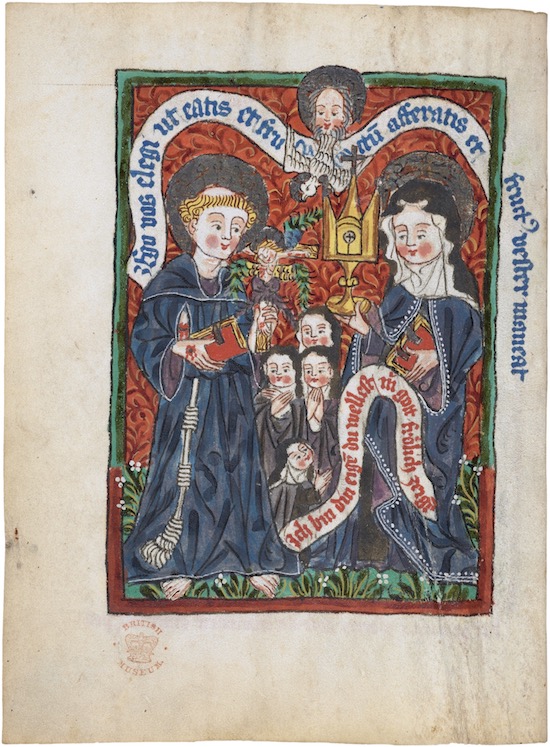 Ego vos elegi ut eatis et fru ctū afferatis et
fructꝰ vester maneat
Ich bin din eigē du wellest gott frölich
BRITISH
MUSEUM